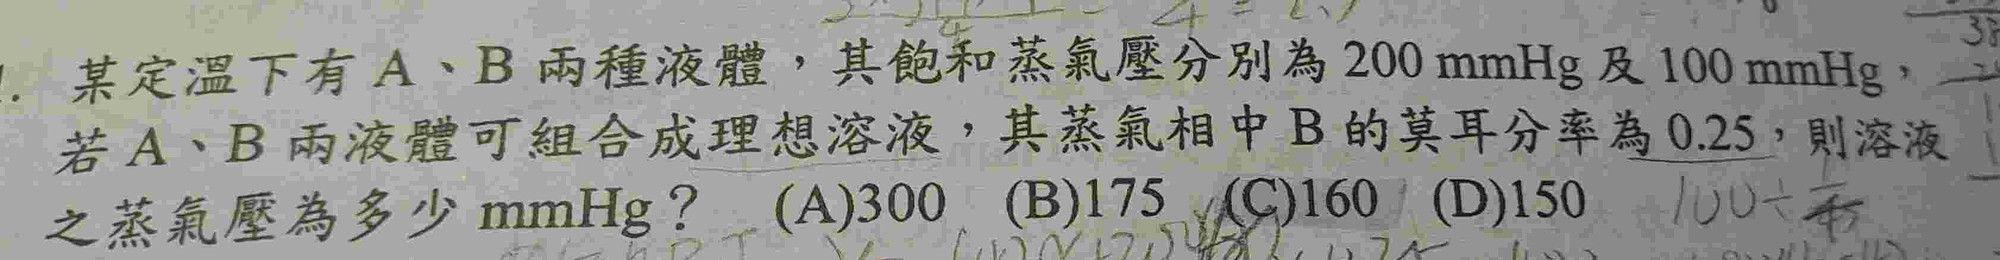 某定溫下有 A、B 兩種液體,其飽和蒸氣壓分別為 200 mmHg 及 100 mmHg,
若 A、B 兩液體可組合成理想溶液,其蒸氣相中 B 的莫耳分率為 0.25,則溶液
之蒸氣壓為多少 mmHg? (A)300 (B)175 (C)160 (D)150 100÷